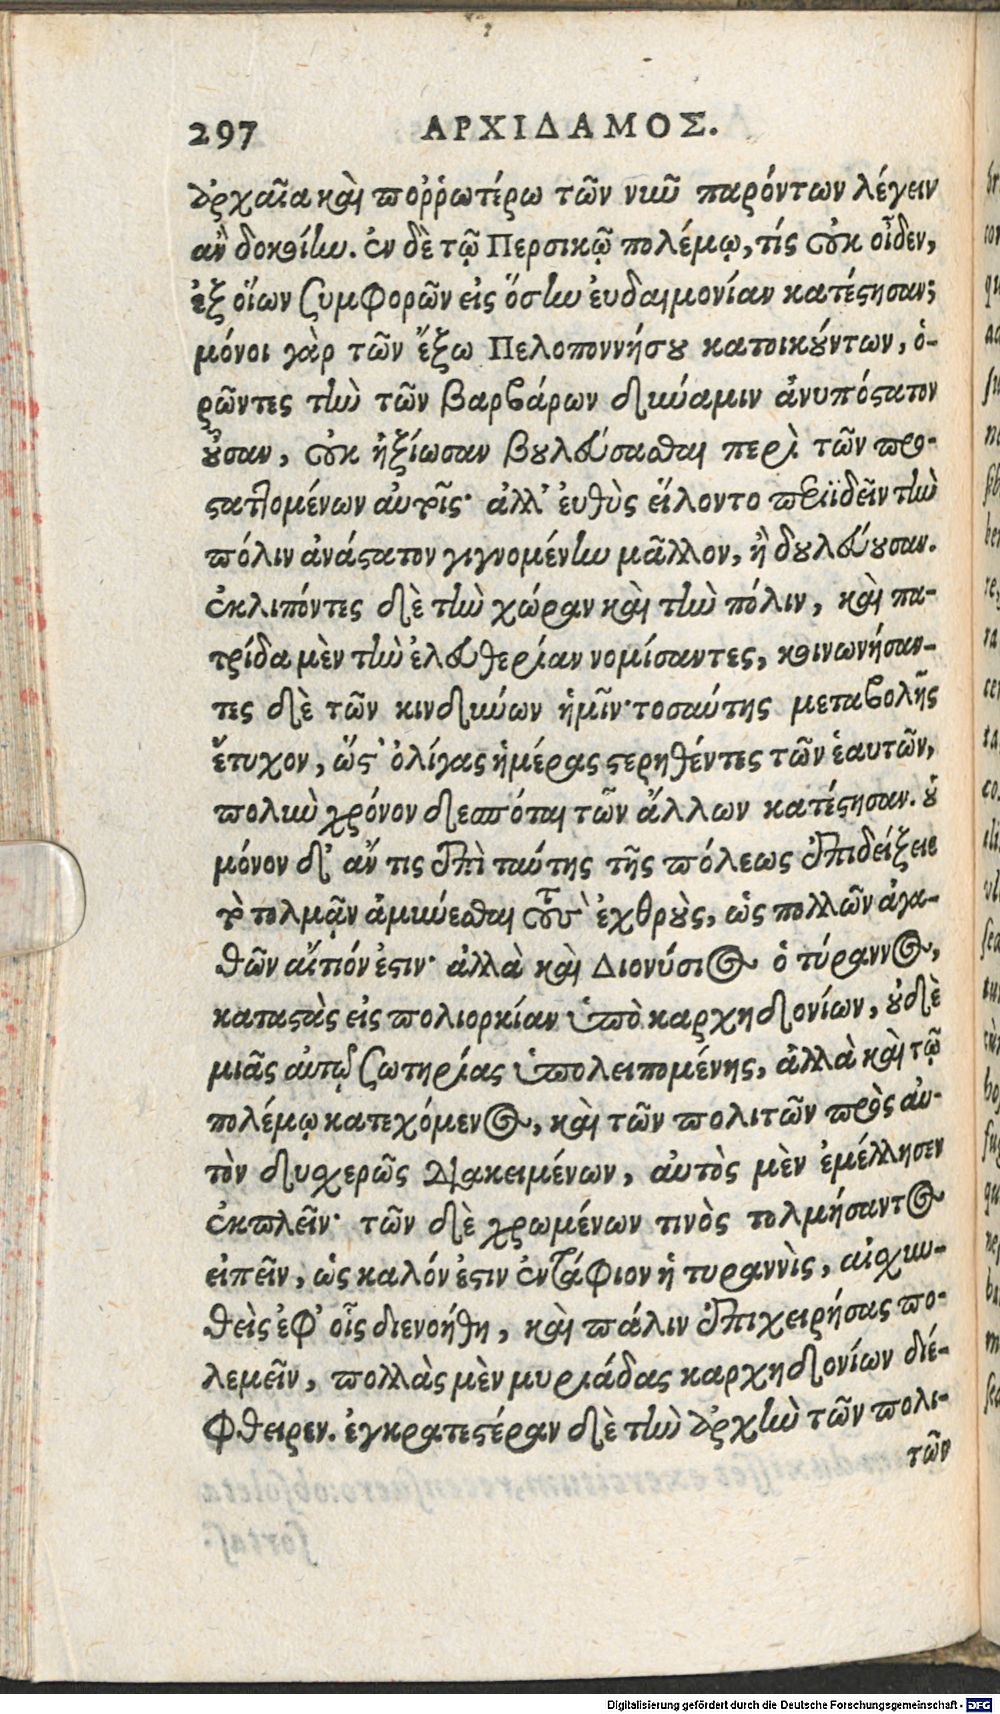 297 ΑΡΧΙΔΑΜΟΣ.
ἀρχαῖα καὶ ποῤῥωτέρω τῶν νιῦ παρόντων λέγειν
ἂν δοκοίην. ἐν δὲ τῷ Περσικῷ πολέμῳ, τίς οὐκ οἶδεν,
ἐξ οἵων συμφορῶν εἰς ὅσην εὐδαιμονίαν κατέστησαν;
μόνοι γὰρ τῶν ἔξω Πελοποννήσου κατοικούντων, ὁ-
ρῶντες τὴν τῶν βαρβάρων δύναμιν ἀνυπόστατον
οὖσαν, οὐκ ἠξίωσαν βουλεύσασθαι περὶ τῶν προ-
σταττομένων αὐτοῖς· ἀλλ' εὐθὺς εἵλοντο περιϊδεῖν τὴν
πόλιν ἀνάστατον γιγνομένην μᾶλλον, ἢ δουλεύουσαν.
ἐκλιπόντες δὲ τὴν χώραν καὶ τὴν πόλιν, καὶ πα-
τρίδα μὲν τὴν ἐλευθερίαν νομίσαντες, κοινωνήσαν-
τες δὲ τῶν κινδύνων ἡμῖν· τοσαύτης μεταβολῆς
ἔτυχον, ὥστ' ὀλίγας ἡμέρας στερηθέντες τῶν ἑαυτῶν,
πολὺν χρόνον δεσπόται τῶν ἄλλων κατέστησαν. οὐ
μόνον δ' ἄν τις ἐπὶ ταύτης τῆς πόλεως ἐπιδείξειε
τὸ τολμᾷν ἀμύνεσθαι τοὺς ἐχθροὺς, ὡς πολλῶν ἀγα-
θῶν αἴτιόν ἐστιν· ἀλλὰ καὶ Διονύσιος ὁ τύραννος,
καταστὰς εἰς πολιορκίαν ὑπὸ καρχηδονίων, οὐδὲ
μιᾶς αὐτῷ σωτηρίας ὑπολειπομένης, ἀλλὰ καὶ τῷ
πολέμῳ κατεχόμενος, καὶ τῶν πολιτῶν πρὸς αὐ-
τὸν δυσχερῶς διακειμένων, αὐτὸς μὲν ἐμέλλησεν
ἐκπλεῖν· τῶν δὲ χρωμένων τινὸς τολμήσαντος
εἰπεῖν, ὡς καλόν ἐστιν ἐντάφιον ἡ τυραννὶς, αἰσχυν-
θεὶς ἐφ' οἷς διενοήθη, καὶ πάλιν ἐπιχειρήσας πο-
λεμεῖν, πολλὰς μὲν μυριάδας καρχηδονίων διέ-
φθειρεν. ἐγκρατεστέραν δὲ τὴν ἀρχὴν τῶν πολι-
τῶν
Digitalisierung gefördert durch die Deutsche Forschungsgemeinschaft - DFG